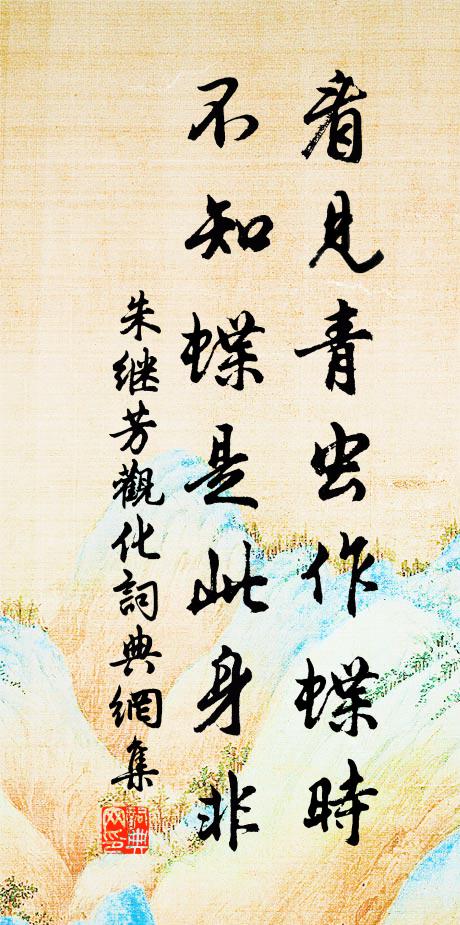 看見青虫作蝶時
不知蝶是此身非
朱继芳觀化詞典網集
詞典網印